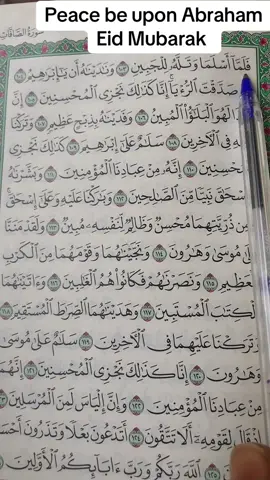 Peace be upon Abraham
Eid Mubarak
سورة الصافات
فَلَمَّا أَسْلَمَا وَتَلَّهُ لِلْجَبِينِ ١٠٣ وَنَٰدَيْنَٰهُ أَن يَٰٓإِبْرَٰهِيمُ ١٠٤
صَدَّقْتَ ٱلرُّءْيَآ إِنَّا كَذَٰلِكَ نَجْزِى ٱلْمُحْسِنِينَ ١٠٥ إِنَّ
لَهُوَ ٱلْبَلَٰٓؤُا۟ ٱلْمُبِينُ ١٠٦ وَفَدَيْنَٰهُ بِذِبْحٍ عَظِيمٍ ١٠٧ وَتَرَكْنَا
فِى ٱلْءَاخِرِينَ ١٠٨ سَلَٰمٌ عَلَىٰٓ إِبْرَٰهِيمَ ١٠٩ كَذَٰلِكَ نَجْزِى
ٱلْمُحْسِنِينَ ١١٠ إِنَّهُۥ مِنْ عِبَادِنَا ٱلْمُؤْمِنِينَ ١١١ وَبَشَّرْنَٰهُ
بِإِسْحَٰقَ نَبِيًّا مِّنَ ٱلصَّٰلِحِينَ ١١٢ وَبَٰرَكْنَا عَلَيْهِ وَعَلَىٰٓ إِسْحَٰقَ
مِن ذُرِّيَّتِهِمَا مُحْسِنٌ وَظَالِمٌ لِّنَفْسِهِۦ مُبِينٌ ١١٣ وَلَقَدْ مَنَنَّا
عَلَىٰ مُوسَىٰ وَهَٰرُونَ ١١٤ وَنَجَّيْنَٰهُمَا وَقَوْمَهُمَا مِنَ ٱلْكَرْبِ
ٱلْعَظِيمِ ١١٥ وَنَصَرْنَٰهُمْ فَكَانُوا۟ هُمُ ٱلْغَٰلِبِينَ ١١٦ وَءَاتَيْنَٰهُمَا
ٱلْكِتَٰبَ ٱلْمُسْتَبِينَ ١١٧ وَهَدَيْنَٰهُمَا ٱلصِّرَٰطَ ٱلْمُسْتَقِيمَ ١١٨
وَتَرَكْنَا عَلَيْهِمَا فِى ٱلْءَاخِرِينَ ١١٩ سَلَٰمٌ عَلَىٰ مُوسَىٰ
وَهَٰرُونَ ١٢٠ إِنَّا كَذَٰلِكَ نَجْزِى ٱلْمُحْسِنِينَ ١٢١ إِنَّهُمَا
مِنْ عِبَادِنَا ٱلْمُؤْمِنِينَ ١٢٢ وَإِنَّ إِلْيَاسَ لَمِنَ ٱلْمُرْسَلِينَ ١٢٣
إِذْ قَالَ لِقَوْمِهِۦٓ أَلَا تَتَّقُونَ ١٢٤ أَتَدْعُونَ بَعْلًا وَتَذَرُونَ أَحْسَنَ
١٢٥ ٱللَّهَ رَبَّكُمْ وَرَبَّ ءَابَآئِكُمُ ٱلْأَوَّلِينَ